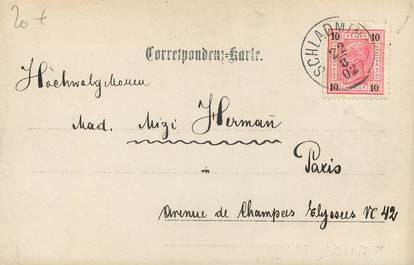 20 t
Correspondenz-Karte.
SCHLADMING
10 10
10 10
Höchwolgeboren
Mad. Mizi Hermañ
in
Paris
Avenue de Champers Elyssees № 42